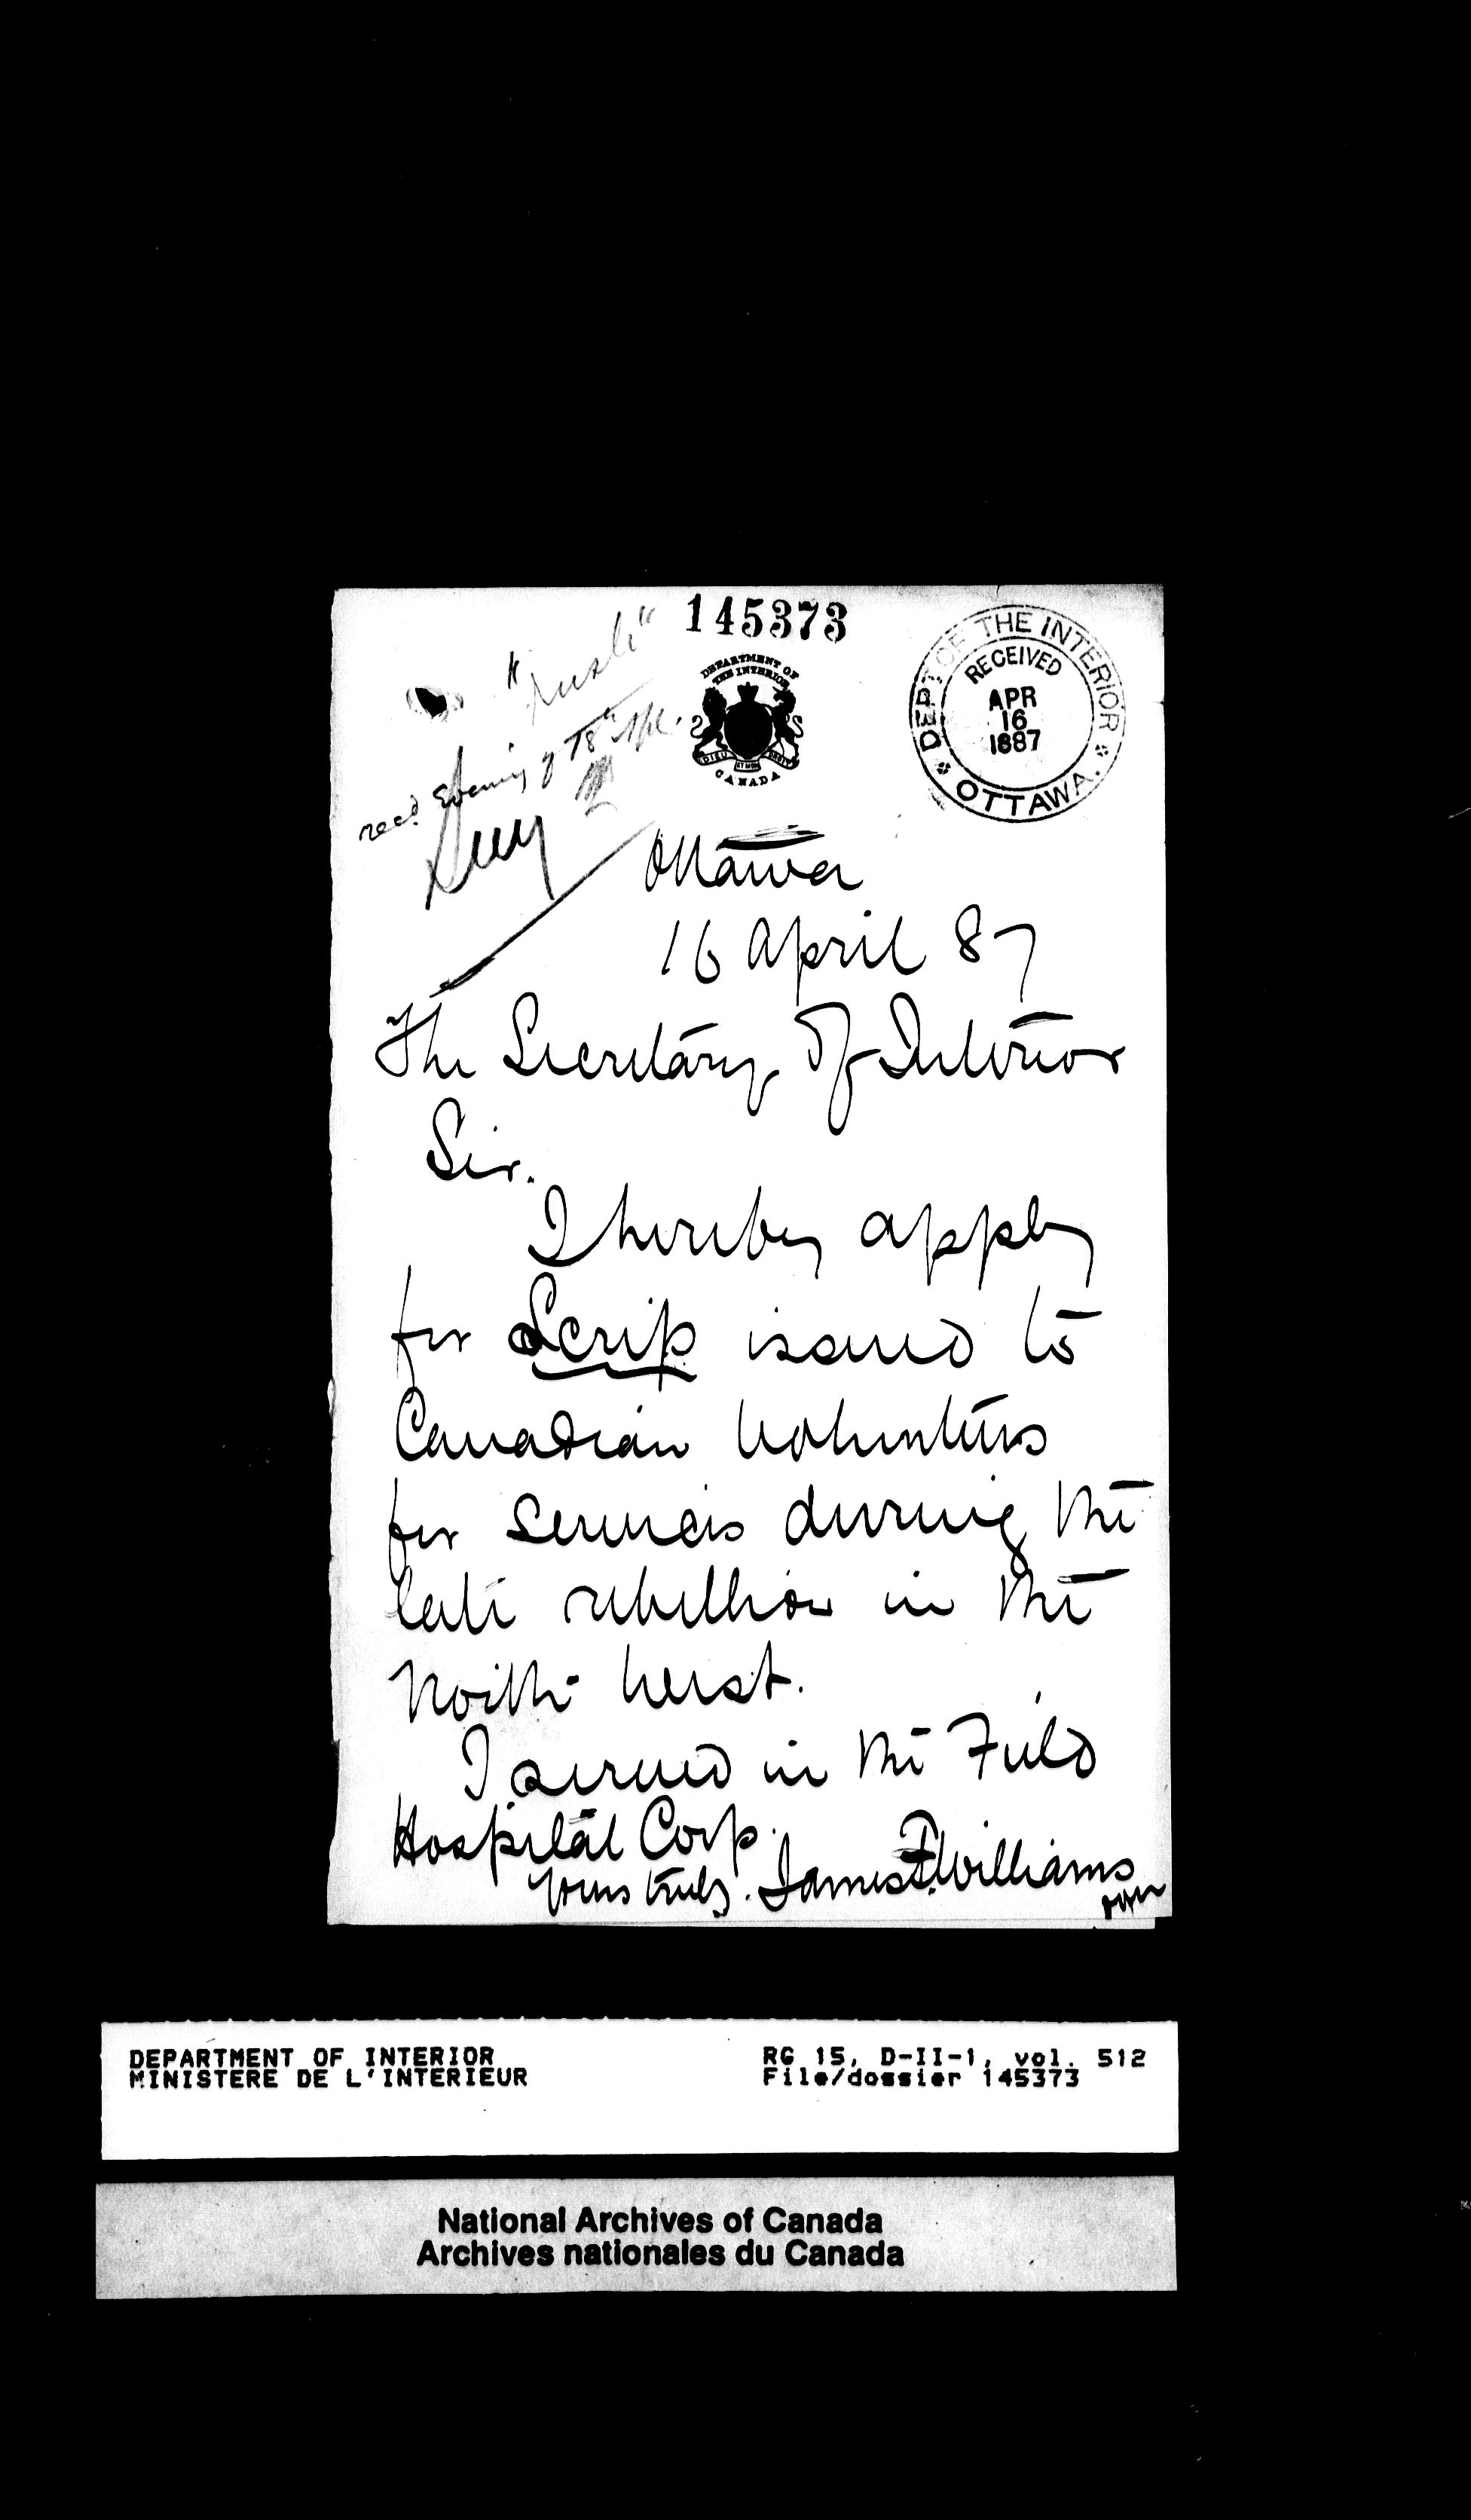 145373
"Rush"
recd Evening of 18th Apl.
DEPARTMENT OF
THE INTERIOR
DIEU ET MON DROIT
CANADA
DEPT OF THE INTERIOR
RECEIVED
APR
16
1887
OTTAWA.
Ottawa
16 April 87
The Secretary of Interior
Sir.
I hereby apply
for Scrip issued to
Canadian Volunteers
for services during the
late rebellion in the
North-West.
I served in the Field
Hospital Corp.
Yours truly. James F. Williams
over
DEPARTMENT OF INTERIOR
MINISTERE DE L'INTERIEUR
RG 15, D-II-1, vol. 512
File/dossier 145373
National Archives of Canada
Archives nationales du Canada